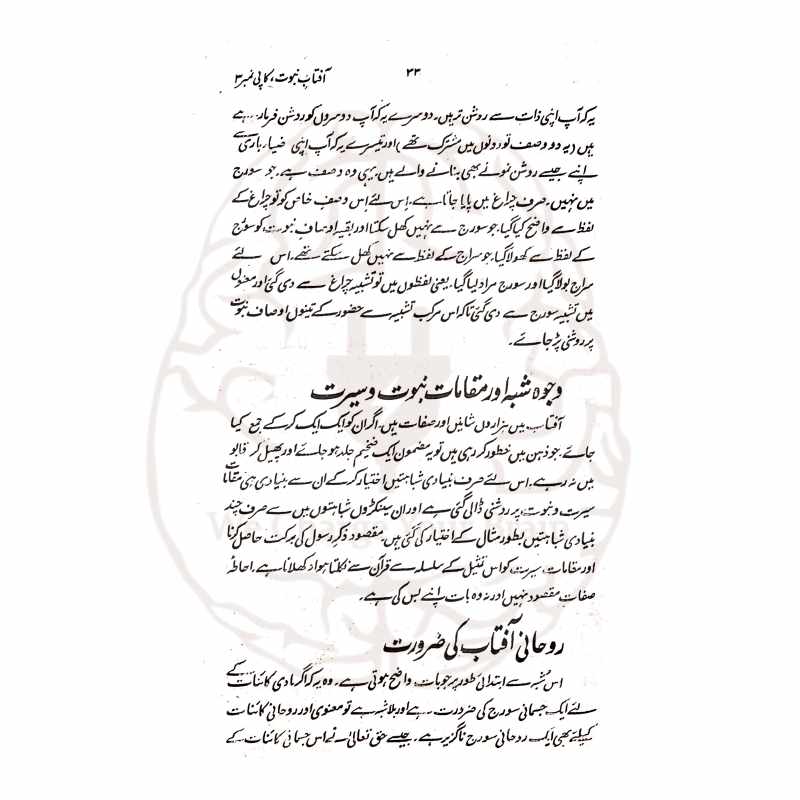 ۳۳
آفتاب نبوت، کاپی نمبر ۳
یہ کہ آپ اپنی ذات سے روشن تر ہیں۔ دوسرے یہ کہ آپ دوسروں کو روشن فرما رہے
ہیں (یہ دو وصف تو دونوں میں مشترک تھے) اور تیسرے یہ کہ آپ اپنی ضیاء باری سے
اپنے جیسے روشن نمونے بھی بنانے والے ہیں۔ یہی وہ وصف ہے۔ جو سورج
میں نہیں۔ صرف چراغ میں پایا جاتا ہے۔ اس لئے اس وصف خاص کو تو چراغ کے
لفظ سے واضح کیا گیا۔ جو سورج سے نہیں کھل سکتا اور بقیہ اوصاف نبوت کو سورج
کے لفظ سے کھولا گیا۔ جو سراج کے لفظ سے نہیں کھل سکتے تھے۔ اس لئے
سراج بولا گیا اور سورج مراد لیا گیا۔ یعنی لفظوں میں تو تشبیہ چراغ سے دی گئی اور معنوں
میں تشبیہ سورج سے دی گئی تاکہ اس مرکب تشبیہ سے حضور کے تینوں اوصاف نبوت
پر روشنی پڑ جائے۔
وجوہ شبہ اور مقامات نبوت و سیرت
آفتاب میں ہزاروں شانیں اور صفات ہیں۔ اگر ان کو ایک ایک کر کے جمع کیا
جائے۔ جو ذہن میں خطور کر رہی ہیں تو یہ مضمون ایک ضخیم جلد ہو جائے اور پھیل کر قابو
میں نہ رہے۔ اس لئے صرف بنیادی شباہتیں اختیار کر کے ان سے بنیادی ہی مقامات
سیرت و نبوت پر روشنی ڈالی گئی ہے اور ان سینکڑوں شباہتوں میں سے صرف چند
بنیادی شباہتیں بطور مثال کے اختیار کی گئی ہیں۔ مقصود ذکر رسول کی برکت حاصل کرنا
اور مقامات سیرت کو اس تمثیل کے سلسلہ سے قرآن سے نکلتا ہوا دکھلانا ہے۔ احاطہ
صفات مقصود نہیں اور نہ وہ بات اپنے بس کی ہے۔
روحانی آفتاب کی ضرورت
اس شبہ سے ابتدائی طور پر جو بات واضح ہوتی ہے۔ وہ یہ کہ اگر مادی کائنات کے
لئے ایک جسمانی سورج کی ضرورت ہے اور بلاشبہ ہے تو معنوی اور روحانی کائنات
کیلئے بھی ایک روحانی سورج ناگزیر ہے۔ جیسے حق تعالیٰ نے اس جسمانی کائنات کے